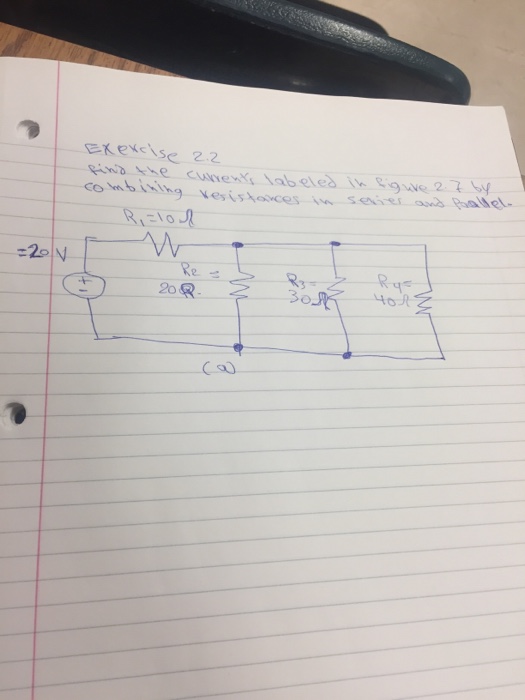 Exercise 2.2
Find the currents labeled in Figure 2.7 by
combining resistances in series and Parallel.
R₁=10Ω
=20 V
R₂ =
20Ω.
R₃=
30Ω
R₄=
40Ω
+
-
(a)